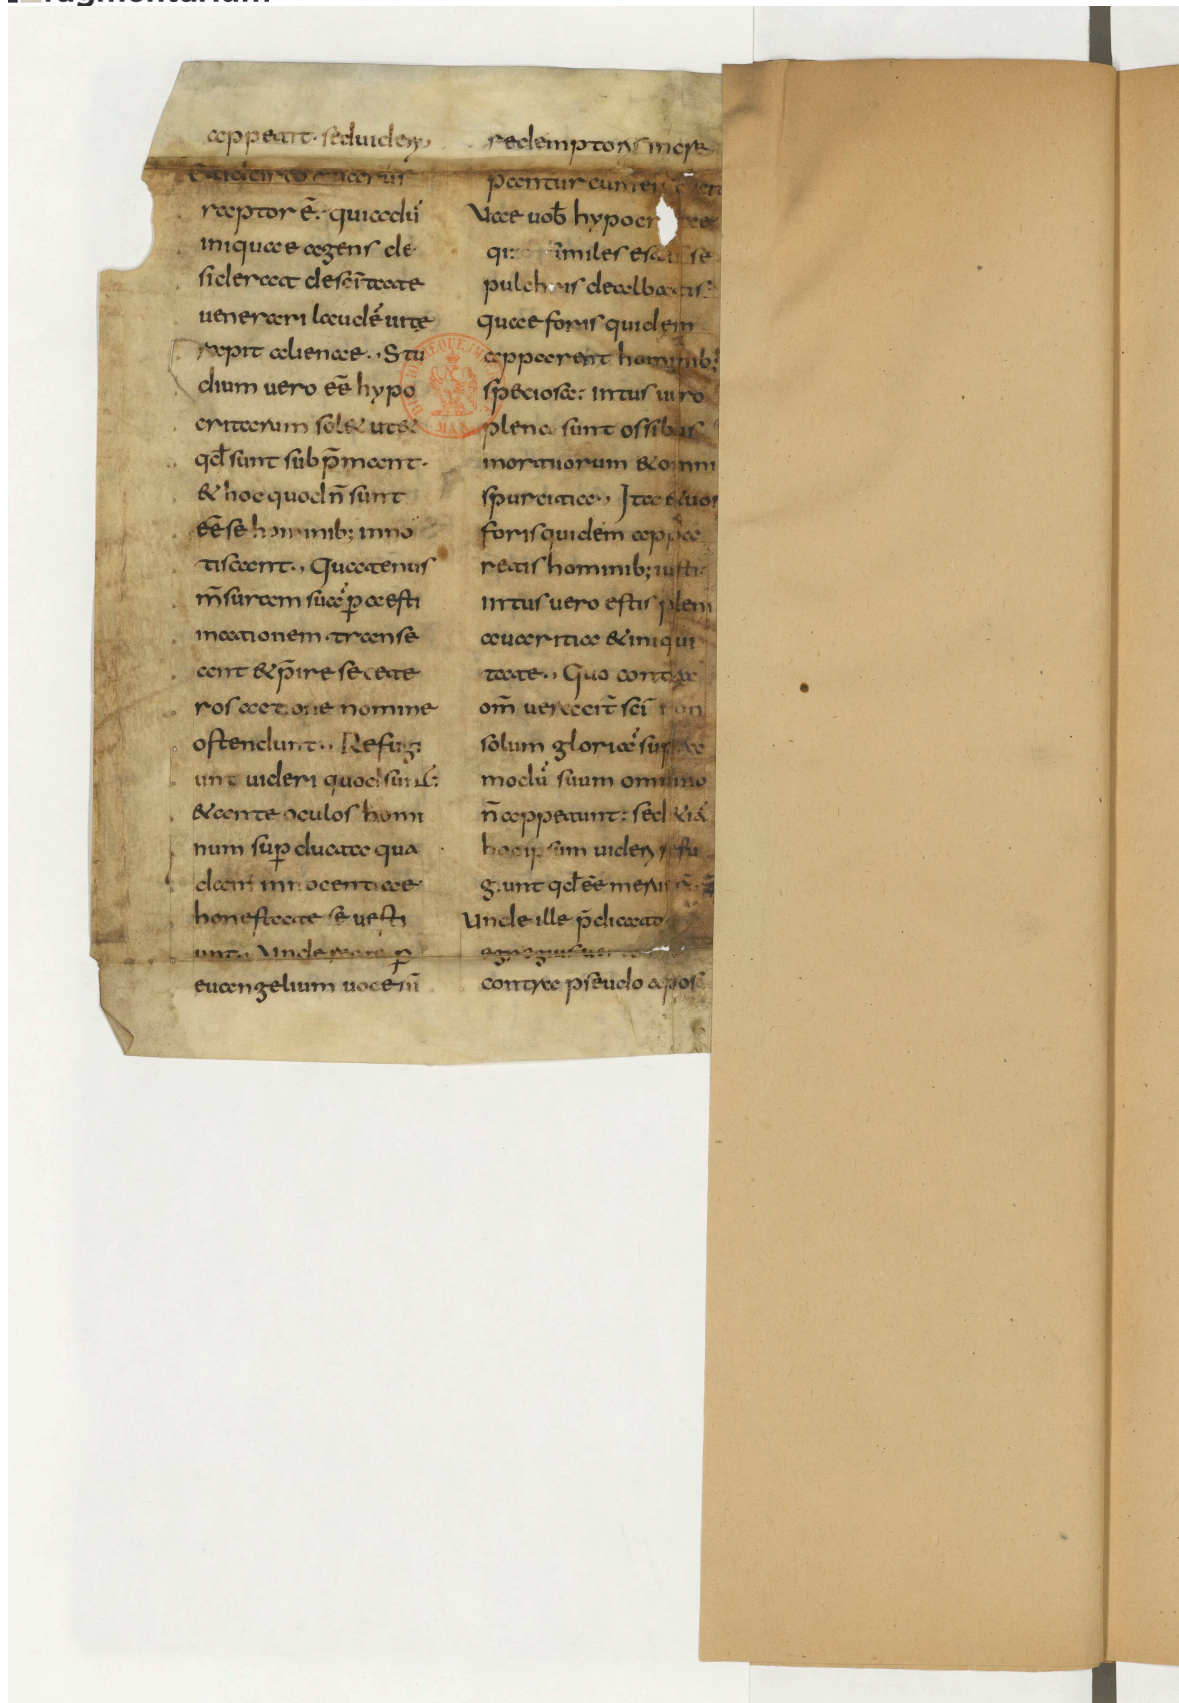 appetit. sed uideri.
Et idcirco
raptor ē. qui cū
iniquae agens de
siderat de scitate
uenerari laudē uitę
rapit alienae., Stu
dium uero eē hypo
critarum sol& ut &
qđ sunt subp̄mant.
& hoc quod n̄ sunt
eē se hominib; inno
tiscant., Quatenus
m̄suram suā ꝑ aesti
mationem transe
ant & p̄ire se cete
ros actione nomine
ostendunt., Refugi
unt uideri quod sunt.
& ante oculos homi
num suꝑducta qua
dam innocentiae
honestate se uesti
unt., Unde recte ꝑ
euangelium uoce n̄i
redemptoris incre
pantur cum eis
Uae uoƀ hypocritae
qui similes estis se
pulchris dealbatis.
quae foris quidem
apparent hominib;
speciosa: intus uero
plena sunt ossibus
mortuorum & omni
spurcitia., Ita & uos
foris quidem appa
retis hominib; iusti.
intus uero estis pleni
auaritia & iniqui
tate., Quo contra
om̄ ueracit̄ sc̄i non
solum gloriā supra
modū suum omnino
n̄ appetunt: sed &iā
hoc ipsum uideri refu
giunt qđ eē meruer
Unde ille p̄dicator
egregius
contra pseudo apos